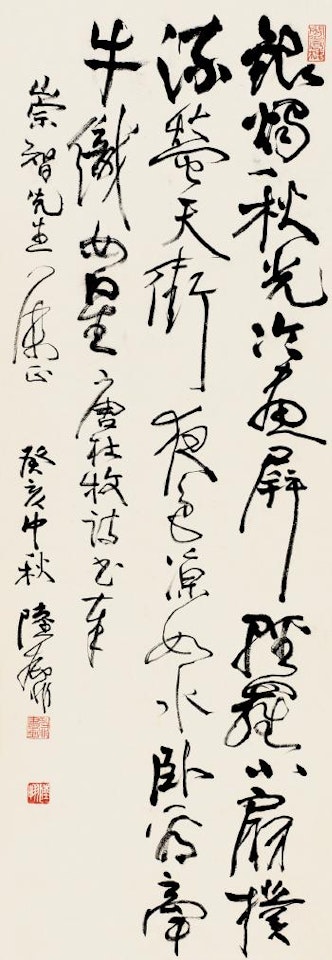 銀燭秋光冷畫屏輕羅小扇撲
流螢天街夜色涼如水臥看牽
牛織女星唐杜牧詩書奉
崇智先生正
癸亥中秋陸